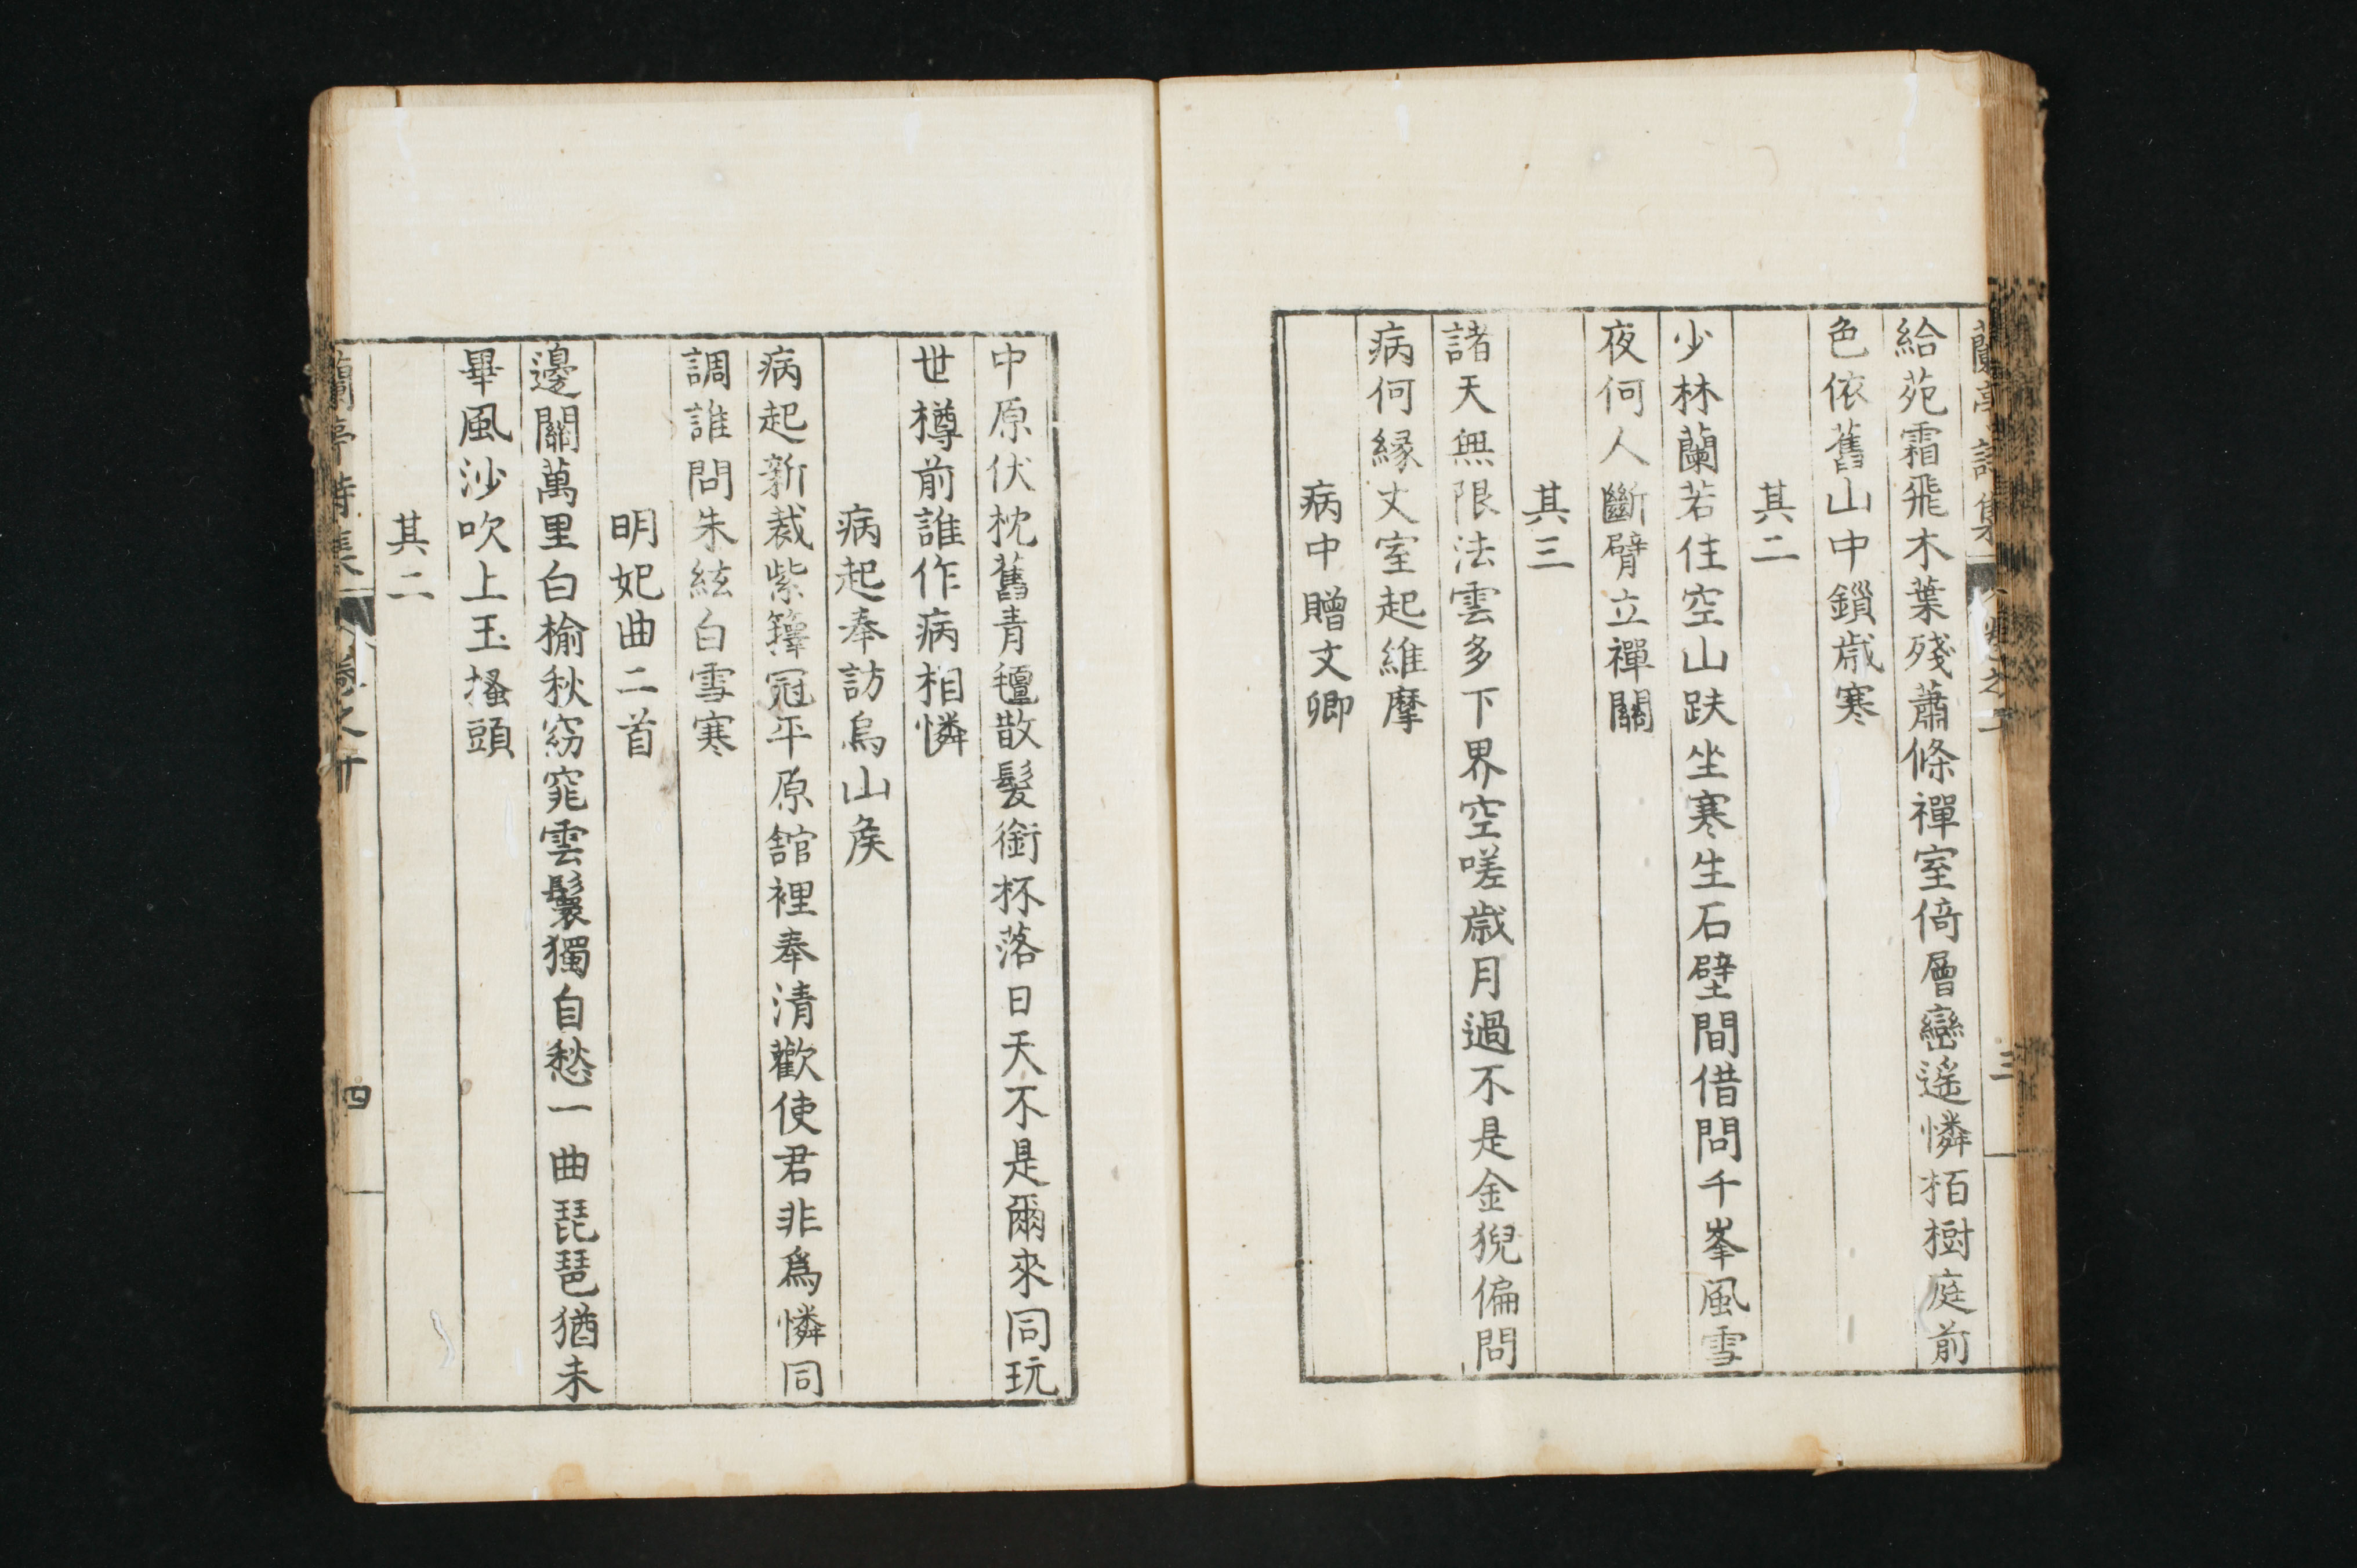 蘭亭詩集 卷之十 三
給苑霜飛木葉殘蕭條禪室倚層巒遙憐栢樹庭前
色依舊山中鎖歲寒
其二
少林蘭若住空山趺坐寒生石壁間借問千峯風雪
夜何人斷臂立禪關
其三
諸天無限法雲多下界空嗟歲月過不是金猊偏問
病何緣丈室起維摩
病中贈文卿
中原伏枕舊青氊散髮銜杯落日天不是爾來同玩
世樽前誰作病相憐
病起奉訪烏山矦
病起新裁紫籜冠平原舘裡奉清歡使君非爲憐同
調誰問朱絃白雪寒
明妃曲二首
邊關萬里白榆秋窈窕雲鬟獨自愁一曲琵琶猶未
畢風沙吹上玉搔頭
其二
蘭亭詩集 卷之十 四